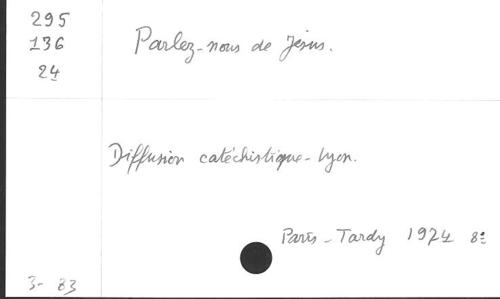 295
136
24
Parlez-nous de Jésus.
Diffusion catéchistique-Lyon.
Paris-Tardy 1974 8º
3-83